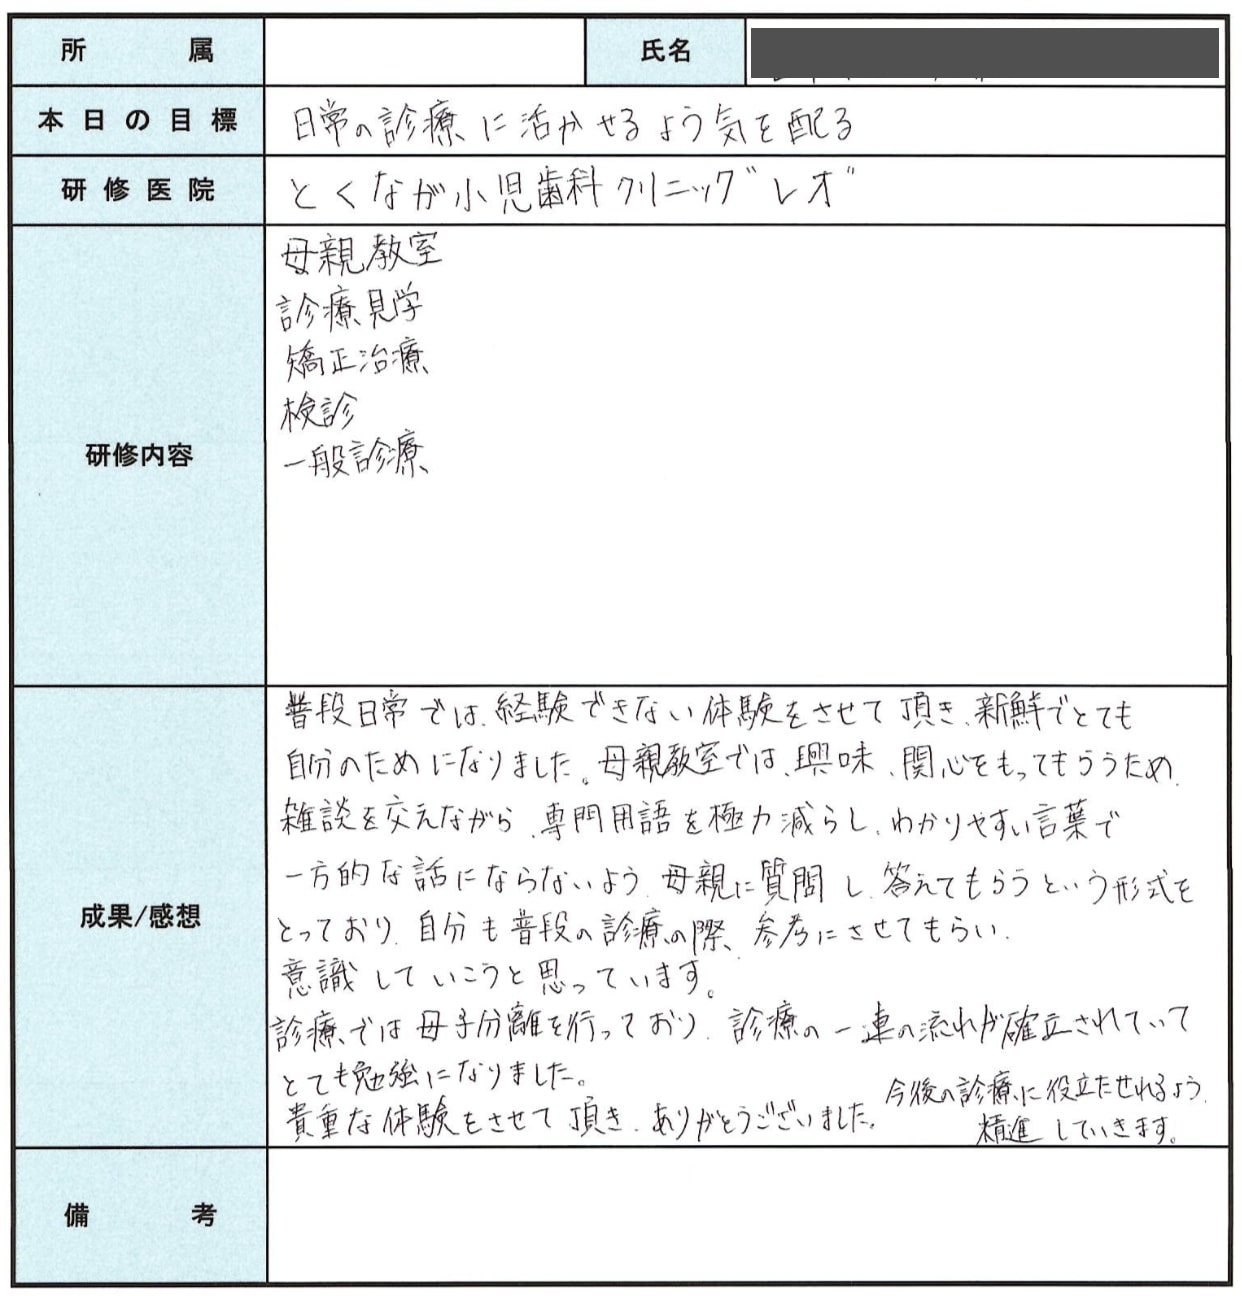 所属 氏名
本日の目標 日常の診療に活かせるよう気を配る
研修医院 とくなが小児歯科クリニック゛レオ゛
研修内容
母親教室
診療見学
矯正治療
検診
一般診療
成果/感想
普段日常では、経験できない体験をさせて頂き、新鮮でとても
自分のためになりました。母親教室では、興味、関心をもってもらうため、
雑談を交えながら、専門用語を極力減らし、わかりやすい言葉で
一方的な話にならないよう、母親に質問し、答えてもらうという形式を
とっており、自分も普段の診療の際、参考にさせてもらい、
意識していこうと思っています。
診療では母子分離を行っており、診療の一連の流れが確立されていて
とても勉強になりました。
貴重な体験をさせて頂き、ありがとうございました。
今後の診療に役立たせれるよう、
精進していきます。
備考